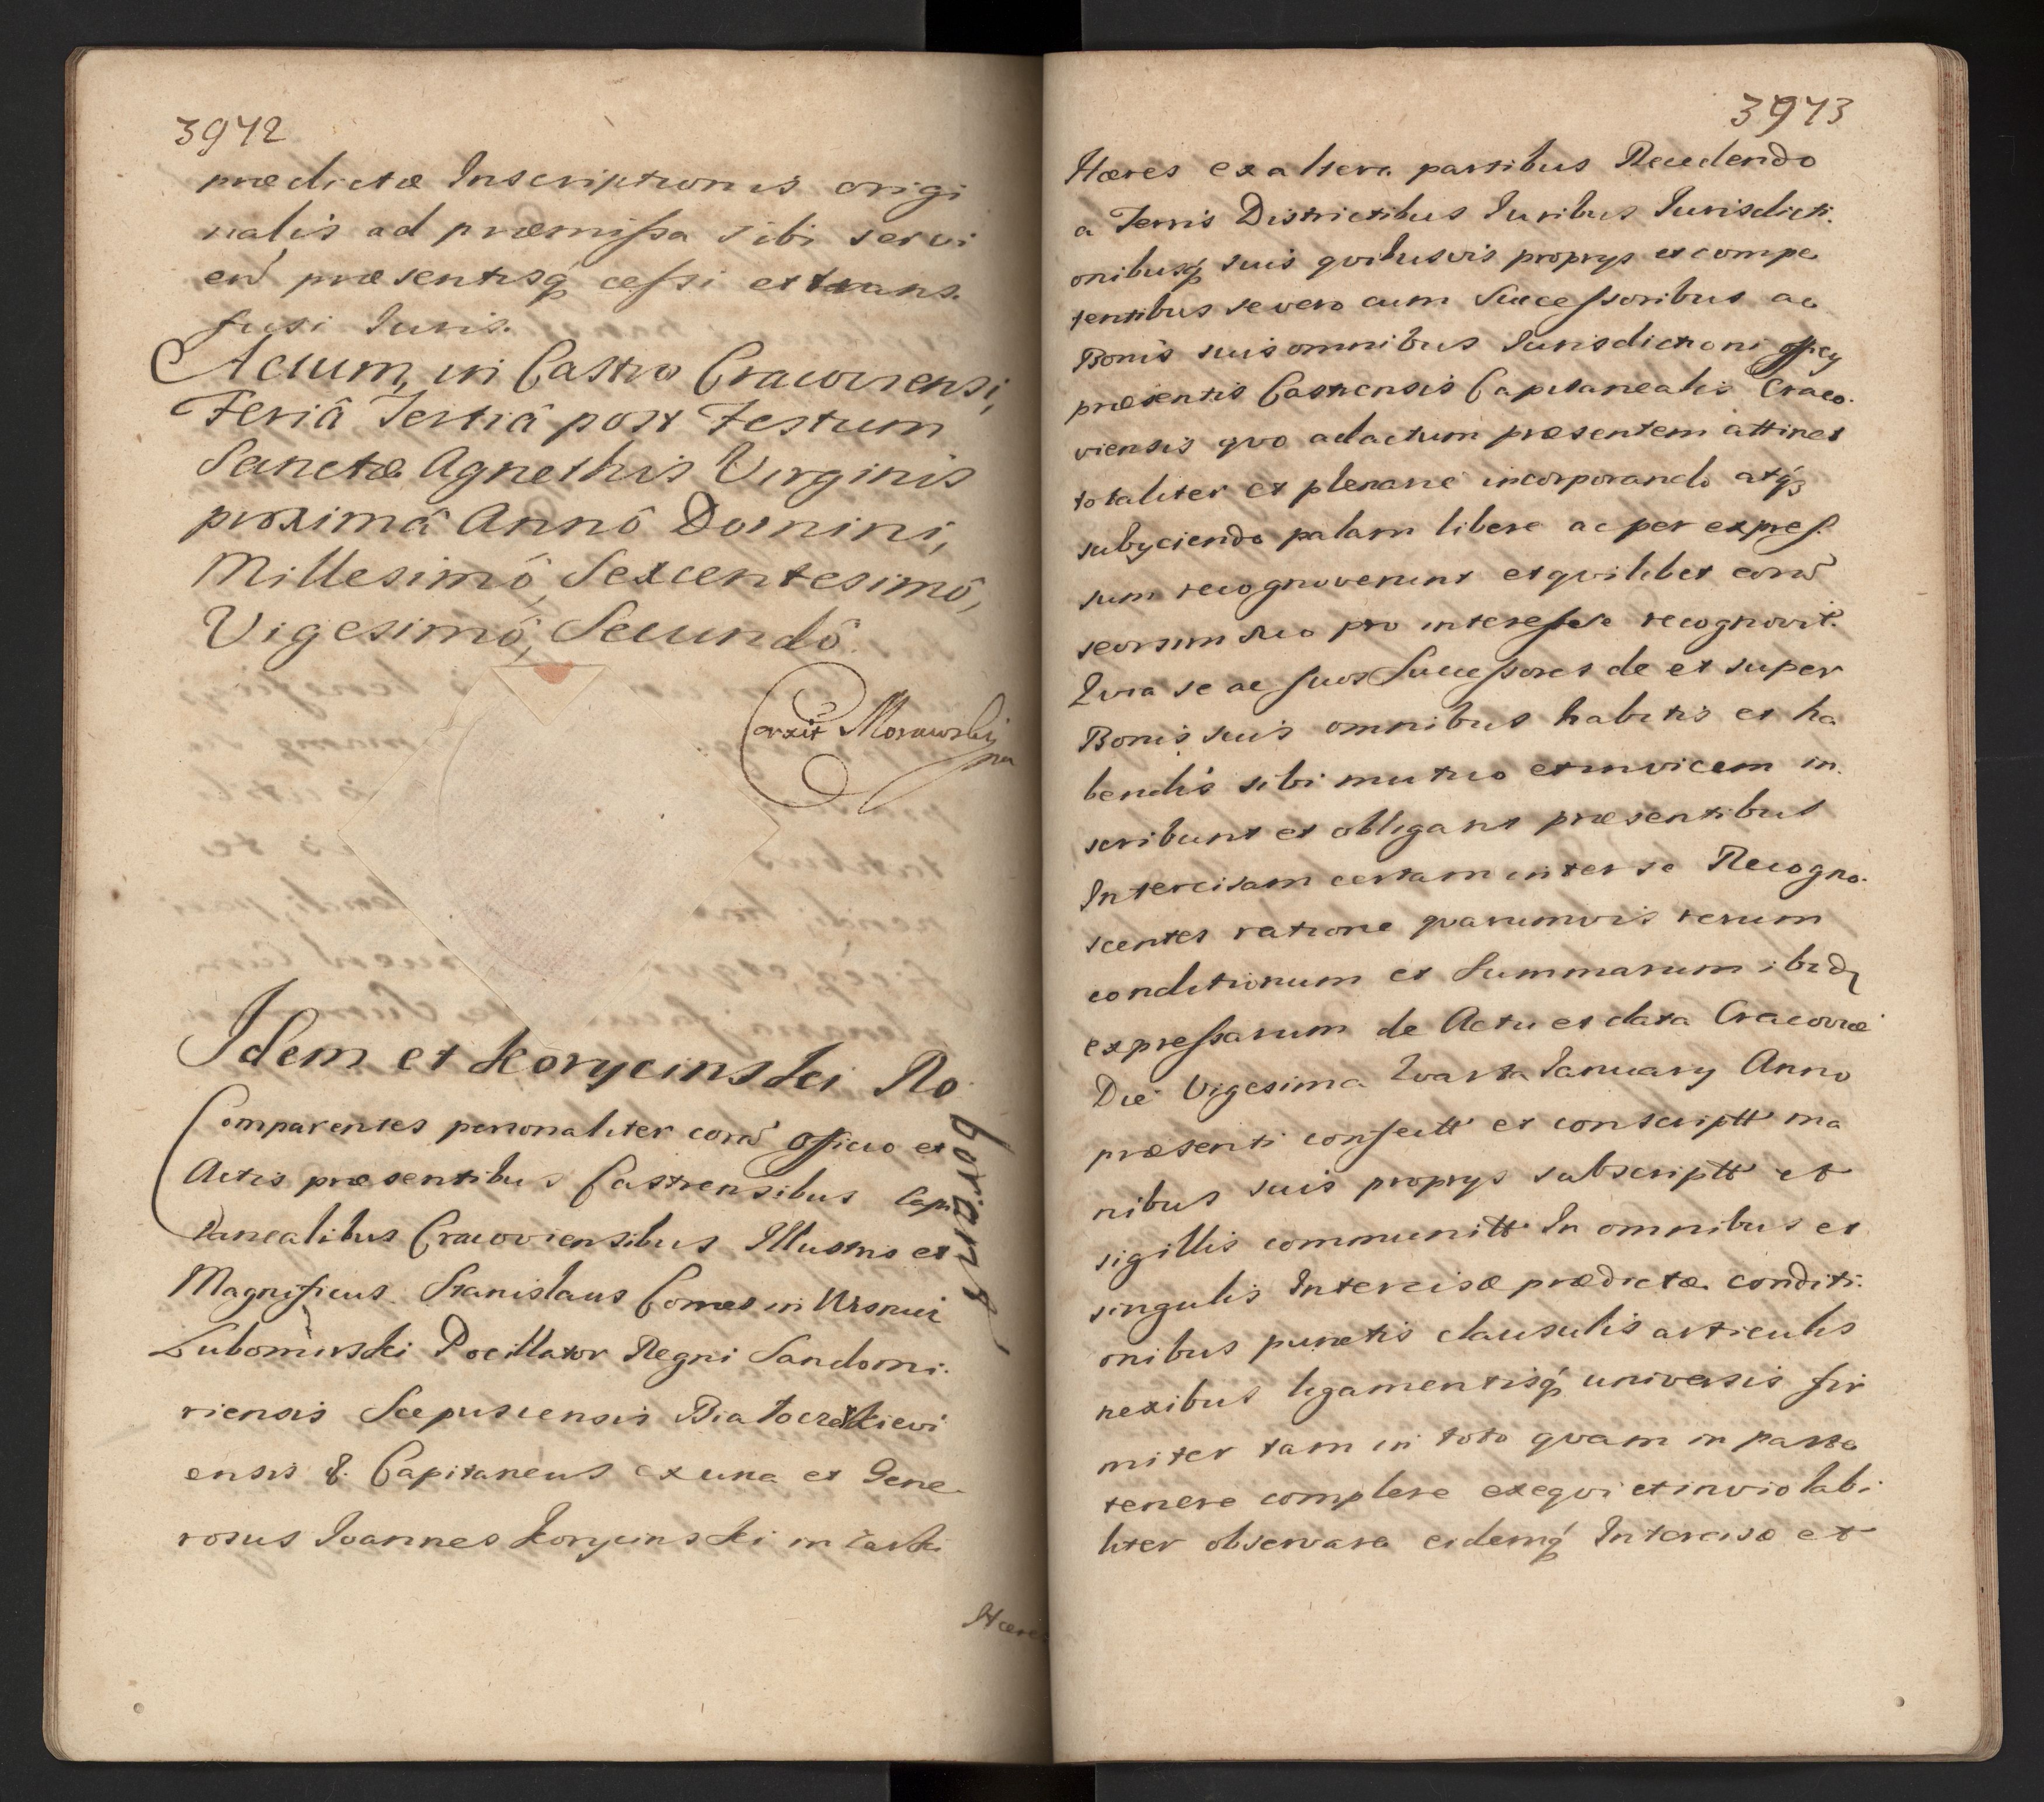 3942
prædictæ Inscriptionis origi
nalis ad præmissa sibi servi
end præsentisq́ cessi et trans.
fusi Iuris.
Actum, in Castro Cracoviensi,
Feriâ Tertiâ post Festum
Sanctæ Agnethis Virginis
proximâ Annô Domini,
Millesimô, Sexcentesimô,
Vigesimô, Secundô.
Corxit Morawski
Idem et Korycinski Ro
boraõn
Comparentes personaliter corã Officio et
Actis præsentibus Castrensibus Capi
taneatibus Cracoviensibus Illustris et
Magnificus Stanislaus Comes in Wisnicz
Lubomirski Pocillator Regni Sandomi.
riensis Scepusiensis Białocerkievi
ensis &. Capitaneus ex una et Gene
rosus Ioannes Korycinski in
Hæres
3943
Hæres ex altera partibus Recedendo
a Terris Districtibus Iuribus Iurisdicti.
onibusq́ suis qvibusvis proprys et compe
tentibus se vero cum Successoribus ac
Bonis suis omnibus Iurisdictioni officy
præsentis Castrensis Capitanealis Craco.
viensis qvo ad actum præsentem attinet
totaliter et plenarie incorporando atq́
subyciendo palam libere ac per expres.
sum recognoverunt et qvilibet eorũ
seorsum suo pro interesse recognovit.
Qvia se ac suos Successores de et super
Bonis suis omnibus habitis et ha
bendis sibi mutuo et invicem in.
scribunt et obligant præsentibus
Intercisam certam inter se Recogno.
scentes ratione qvarumvis rerum
conditionum et Summarum ibid
expressarum de Actu et data Cracoviæ
Die Vigesima Qvarta Ianuary Anno
præsenti confectt et conscriptt ma
nibus suis proprys subscriptt et
sigillis communitt In omnibus et
singulis Intercisæ prædictæ conditi.
onibus punctis clausulis articulis
nexibus ligamentisq́ universis fir
miter tam in toto qvam in parte
tenere complere exeqvi et inviolabi
liter observare eidemq́ Intercisæ et